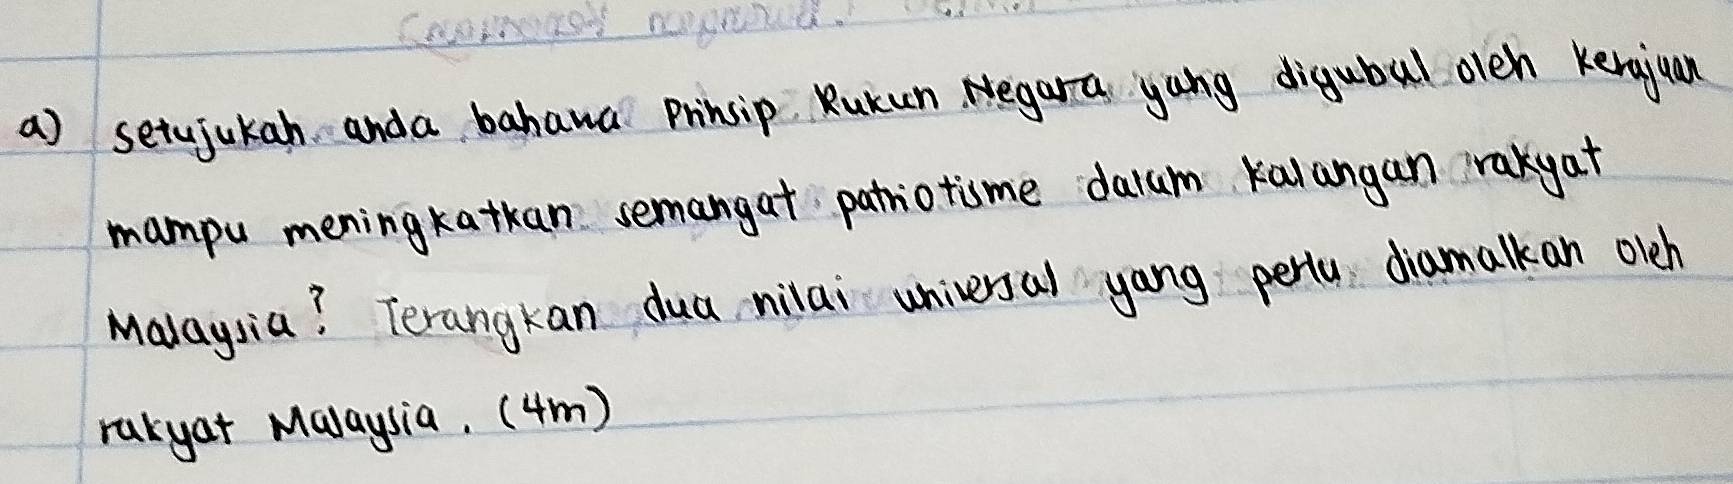 a) setujukah anda bahawa Prinsip Rukun Negara yang digubal oleh kerajaan
mampu meningkatkan semangat patriotisme dalam kalangan rakyat
Malaysia? Terangkan dua nilai universal yang perlu diamalkan oleh
rakyat Malaysia. (4m)